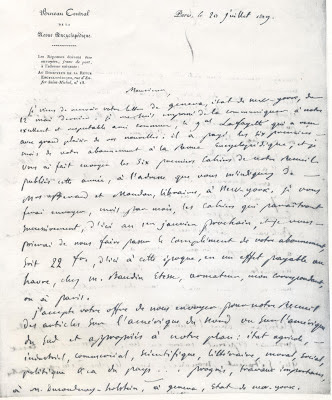 Bureau Central
DE LA
Revue Encyclopédique
Paris, le 20 juillet 1829.
Les Réponses doivent être
envoyées, franc de port,
à l'adresse suivante:
AU DIRECTEUR DE LA REVUE
ENCYCLOPÉDIQUE, rue d'En-
fer-Saint-Michel, n° 18.
Monsieur,
je viens de recevoir votre lettre de geneva, état de new-york, du
12 mai dernier. je me suis empressé de la communiquer à notre
excellent et respectable ami commun, le gal Lafayette qui a reçu
avec grand plaisir de vos nouvelles: il a payé les six premiers
mois de votre abonnement à la Revue Encyclopédique, et je
vous ai fait envoyer les six premiers cahiers de notre Recueil
publiés cette année, à l'adresse que vous m'indiquez de
et Mondon, libraires, à New-york. je vous
ferai envoyer, mois par mois, les cahiers qui paraîtront
successivement, d'ici au 1er janvier prochain, et je vous
prierai de nous faire passer le complément de votre abonnement
soit 22 fr. d'ici à cette époque, en un effet payable au
havre, chez m. Baudin Etesse, armateur, mon correspondant,
ou à paris.
j'accepte votre offre de nous envoyer pour notre Recueil
des articles sur l'amérique du Nord ou sur l'amérique
du Sud et appropriés à notre plan: état agricole,
industriel, commercial, scientifique, littéraire, moral, social
politique &a &a du pays... progrès, travaux importants
à m. Ducoudray-holstein, à geneva, Etat de new-york.